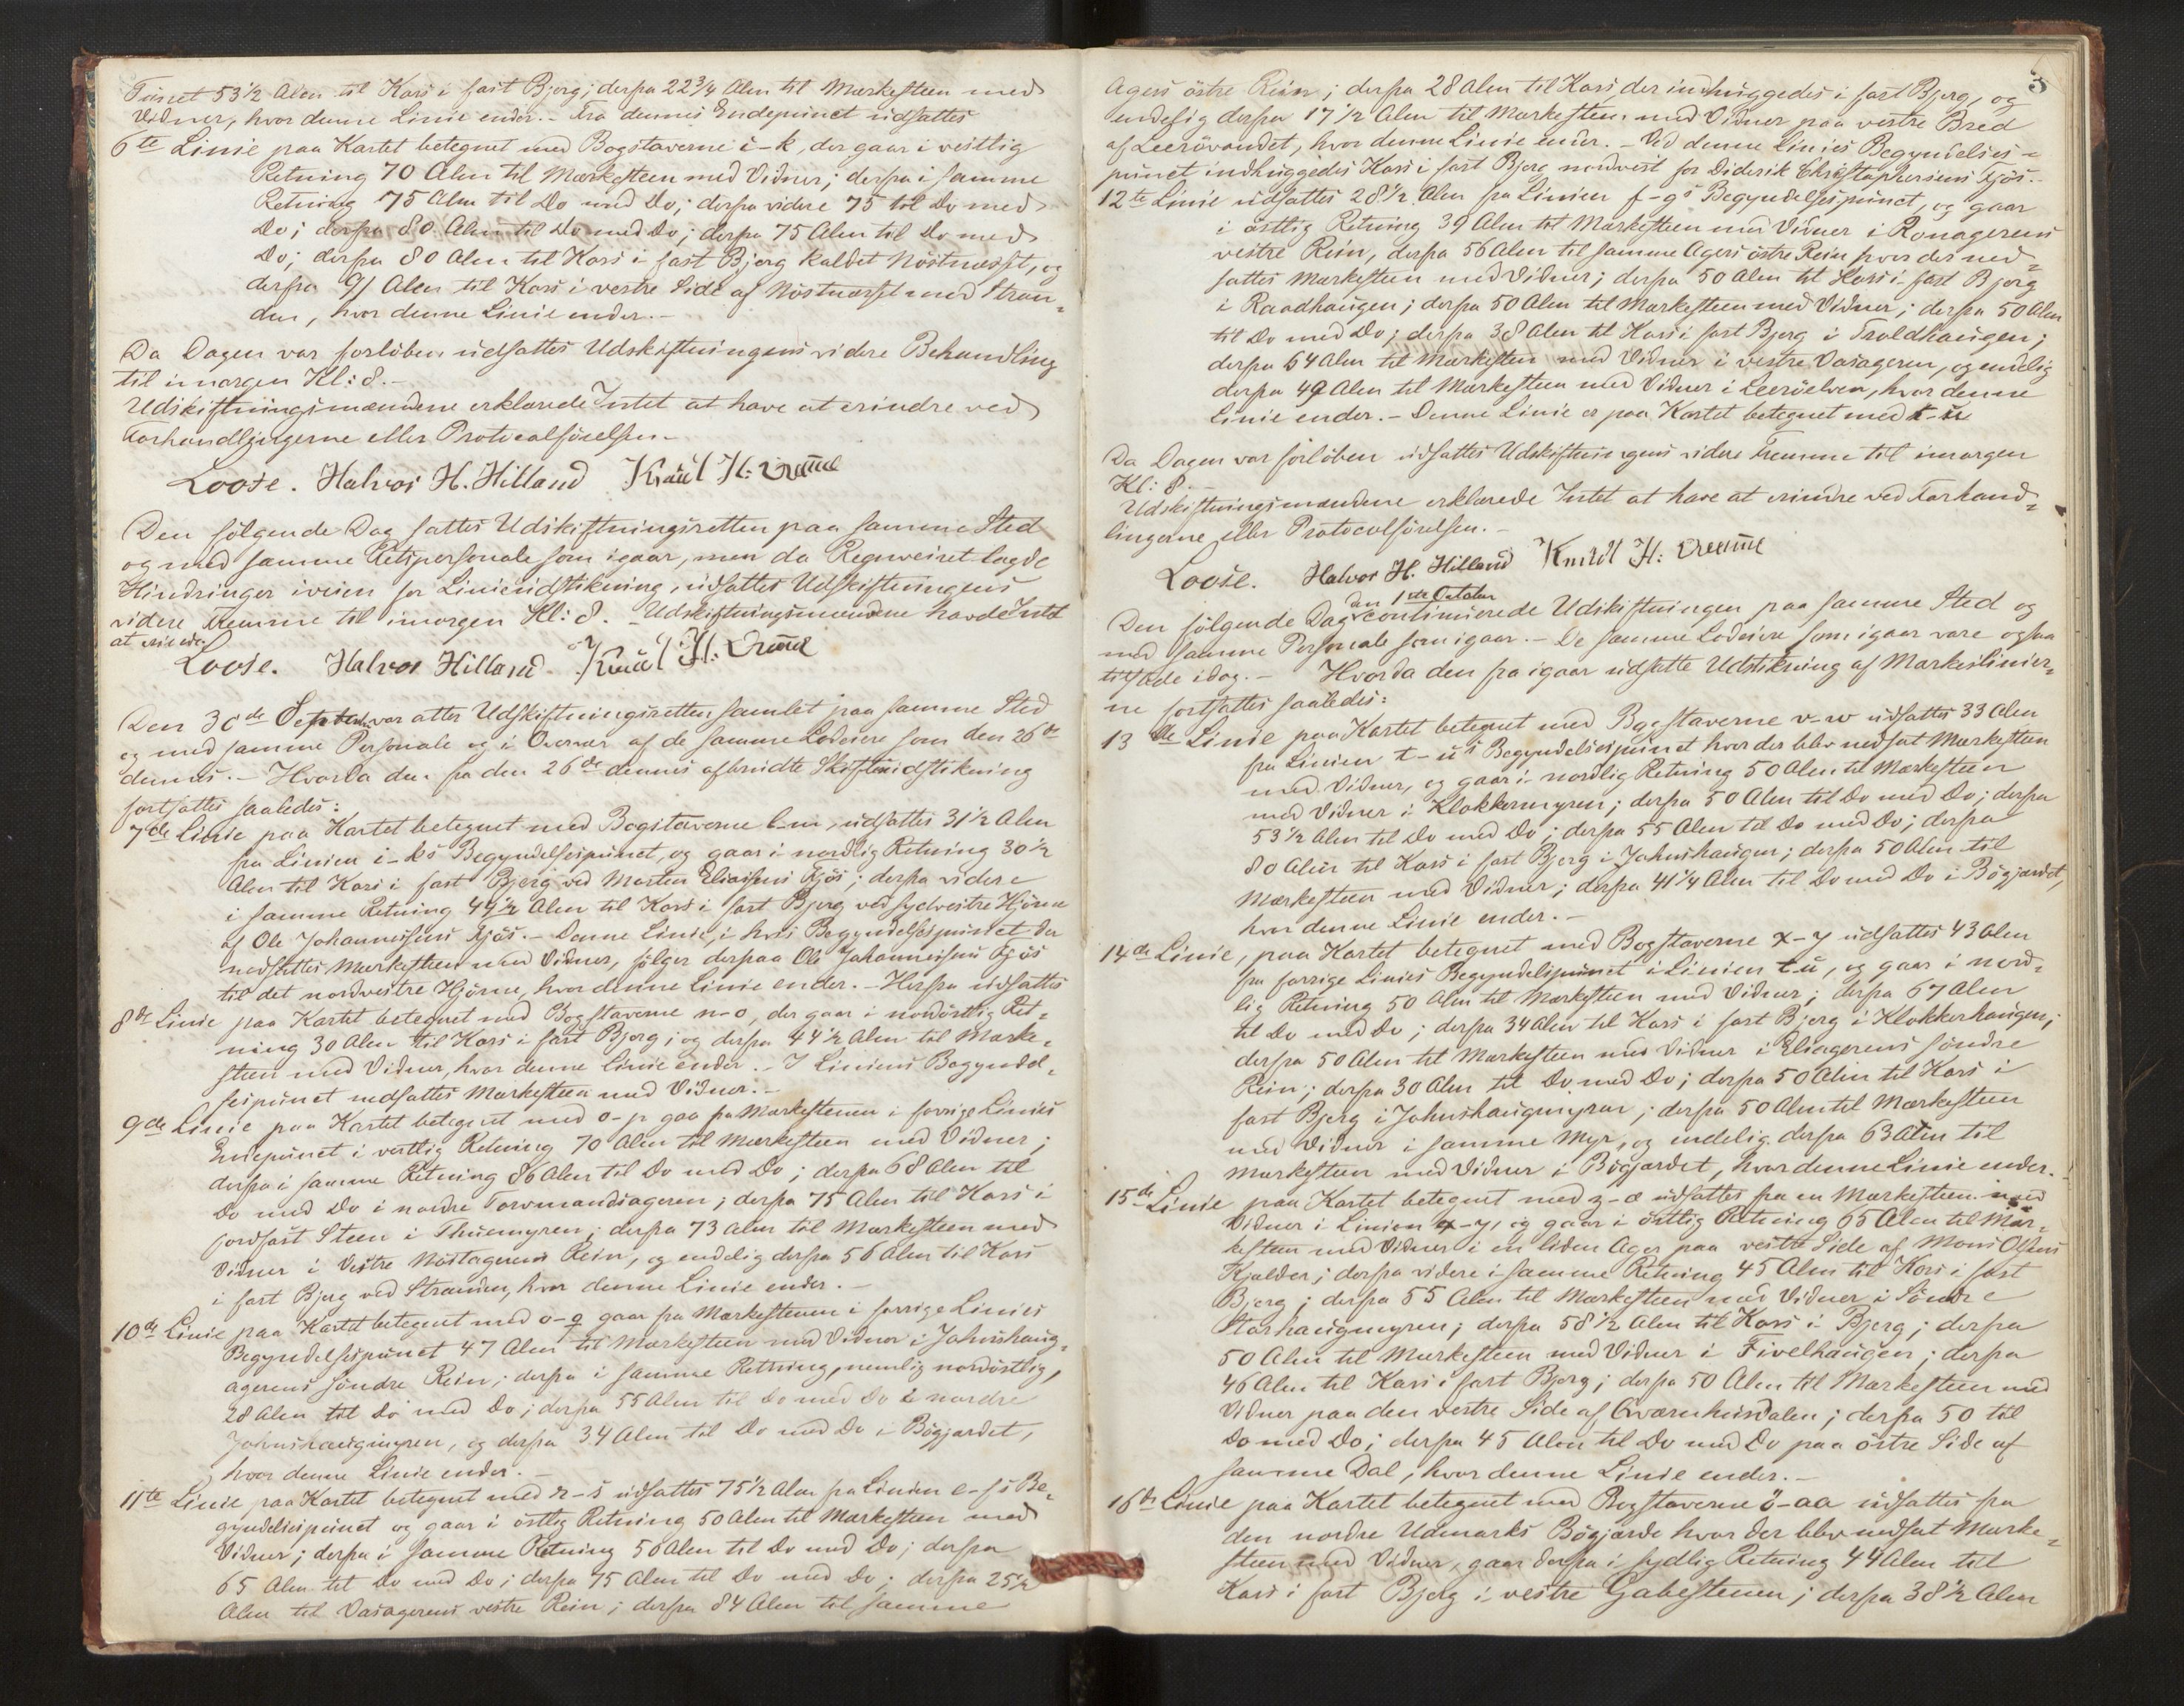 Tunet 53 1/2 Alen til Kors i fast Bjerg; derfra 22 3/4 Alen til Markesteen med
Vidner, hvor denne Linie ender. - Fra dennes Endepunct udsattes
6te Linie paa Kartet betegnet med Bogstaverne i-k, der gaar i vestlig
Retning 70 Alen til Markesteen med Vidner; derfra i samme
Retning 75 Alen til Do med Do; derfra videre 75 til Do med
Do; derfra 80 Alen til Do med Do; derfra 75 Alen til Do med
Do; derfra 80 Alen til Kors i fast Bjerg kaldet Nöstnæsset, og
derfra 91 Alen til Kors i vestre Side af Nöstnæsset med Stran=
den, hvor denne Linie ender. -
Da Dagen var forlöben udsattes Udskiftningens videre Behandling
til imorgen Kl: 8. -
Udskiftningsmændene erklærede Intet at have at erindre ved
Forhandlingerne eller Protocolförelsen. -
Loose. Halvor H. Hilland Knud H:
Den fölgende Dag sattes Udskiftningsretten paa samme Sted
og med samme Retspersonale som igaar, men da Regnveiret lagde
Hindringer iveien for Linieudstikning, udsattes Udskiftningens
videre Fremme til imorgen Kl: 8. - Udskiftningsmændene havde Intet
at erindre.
Loose. Halvor Hilland Knud H:
Den 30de Septbr var atter Udskiftningsretten samlet paa samme Sted
og med samme Personale og i Overvær af de samme Lodeiere som den 26de
dennes. - Hvorda den fra den 26de dennes afbrudte Skifteudstikning
fortsattes saaledes:
7de Linie paa Kartet betegnet med Bogstaverne l-m, udsattes 31 1/2 Alen
fra Linien i-k's Begyndelsespunct, og gaar i nordlig Retning 30 1/2
Alen til Kors i fast Bjerg ved Morten Eliassens Fjös; derfra videre
i samme Retning 44 1/2 Alen til Kors i fast Bjerg ved sydvestre Hjörne
af Ole Johannessens Fjös. - Denne Linie, i hvis Begyndelsespunct der
nedsattes Markesteen med Vidner, fölger derpaa Ole Johannessens Fjös
til det nordvestre Hjörne, hvor denne Linie ender. - Herfra udsattes
8de Linie paa Kartet betegnet med Bogstaverne n-o, der gaar i nordöstlig Ret=
ning 30 Alen til Kors i fast Bjerg; og derfra 44 1/2 Alen til Marke=
steen med Vidner, hvor denne Linie ender. - I Liniens Begyndel=
sespunct nedsattes Markesteen med Vidner. -
9de Linie paa Kartet betegnet med o-p gaar fra Markestenen i forrige Linies
Endepunct i vestlig Retning 70 Alen til Markesteen med Vidner;
derfra i samme Retning 86 Alen til Do med Do; derfra 68 Alen til
Do med Do i nordre Torvmandsageren; derfra 75 Alen til Kors i
jordfast Steen i Thuemyren; derfra 73 Alen til Markesteen med
Vidner i Vestre Nöstagerens Rein, og endelig derfra 56 Alen til Kors
i fast Bjerg ved Stranden, hvor denne Linie ender. -
10de Linie paa Kartet betegnet med o-q gaar fra Markestenen i forrige Linies
Begyndelsespunct 47 Alen til Markesteen med Vidner i Johnshaug=
agerens söndre Rein; derfra i samme Retning, nemlig nordöstlig,
28 Alen til Do med Do; derfra 55 Alen til Do med Do i nordre
Johnshaugmyren, og derfra 34 Alen til Do med Do i Bögjærdet,
hvor denne Linie ender. -
11te Linie paa Kartet betegnet med r-s udsattes 75 1/2 Alen fra Linien e-f's Be=
gyndelsespunct og gaar i östlig Retning 50 Alen til Markesteen med
Vidner; derfra i samme Retning 50 Alen til Do med Do; derfra
65 Alen til Do med Do; derfra 75 Alen til Do med Do; derfra 25 1/2
Alen til Vasagerens vestre Rein; derfra 84 Alen til samme
3
Agers östre Rein; derfra 28 Alen til Kors der indhuggedes i fast Bjerg, og
endelig derfra 17 1/2 Alen til Markesteen med Vidner paa vestre Bred
af Leerövandet, hvor denne Linie ender. - Ved denne Linies Begyndelses=
punct indhuggedes Kors i fast Bjerg nordvest for Diderik Christophersens Fjös. -
12te Linie udsattes 28 1/2 Alen fra Linien f-g's Begyndelsespunct, og gaar
i östlig Retning 39 Alen til Markesteen med Vidner i Ronagerens
vestre Rein, derfra 56 Alen til samme Agers östre Rein hvor der ned=
sattes Markesteen med Vidner; derfra 50 Alen til Kors i fast Bjerg
i Raadhaugen; derfra 50 Alen til Markesteen med Vidner; derfra 50 Alen
til Do med Do; derfra 38 Alen til Kors i fast Bjerg i Troldhaugen;
derfra 64 Alen til Markesteen med Vidner i vestre Vasageren, og endelig
derfra 49 Alen til Markesteen med Vidner i Leeröelven, hvor denne
Linie ender. - Denne Linie er paa Kartet betegnet med t-u
Da Dagen var forlöben udsattes Udskiftningens videre Fremme til imorgen
Kl: 8. -
Udskiftningsmændene erklærede Intet at have at erindre ved Forhand=
lingerne eller Protocolförelsen. -
Loose. Halvor H. Hilland Knud H:
den 1ste October
Den fölgende Dag continuerede Udskiftningen paa samme Sted og
med samme Personale som igaar. - De samme Lodeiere som igaar vare ogsaa
tilstede idag. - Hvorda den fra igaar udsatte Udstikning af Markeslinier=
ne fortsattes saaledes:
13de Linie paa Kartet betegnet med Bogstaverne v-w udsattes 33 Alen
fra Linien t-u's Begyndelsespunct hvor der blev nedsat Markesteen
med Vidner, og gaar i nordlig Retning 50 Alen til Markesteen
med Vidner i Klokkermyren; derfra 50 Alen til Do med Do; derfra
53 1/2 Alen til Do med Do; derfra 55 Alen til Do med Do; derfra
80 Alen til Kors i fast Bjerg i Johnshaugen; derfra 50 Alen til
Markesteen med Vidner; derfra 41 1/4 Alen til Do med Do i Bögjærdet,
hvor denne Linie ender. -
14de Linie, paa Kartet betegnet med Bogstaverne x-y udsattes 43 Alen
fra forrige Linies Begyndelsespunct i Linien t-u, og gaar i nord=
lig Retning 50 Alen til Markesteen med Vidner; derfra 67 Alen
til Do med Do; derfra 34 Alen til Kors i fast Bjerg i Klokkerhaugen;
derfra 50 Alen til Markesteen med Vidner i Eliagerens söndre
Rein; derfra 30 Alen til Do med Do; derfra 50 Alen til Kors i
fast Bjerg i Johnshaugmyran; derfra 50 Alen til Markesteen
med Vidner i samme Myr, og endelig derfra 63 Alen til
Markesteen med Vidner i Bögjærdet, hvor denne Linie ender.
15de Linie paa Kartet betegnet med z-æ udsattes fra en Markesteen med
Vidner i Linien x-y, og gaar i östlig Retning 65 Alen til Mar=
kesteen med Vidner i en liden Ager paa vestre Side af Mons Olsens
Kjælder; derfra videre i samme Retning 45 Alen til Kors i fast
Bjerg; derfra 55 Alen til Markesteen med Vidner i Söndre
Storhaugmyren; derfra 58 1/2 Alen til Kors i Bjerg; derfra
50 Alen til Markesteen med Vidner i Fivelhaugen; derfra
46 Alen til Kors i fast Bjerg; derfra 50 Alen til Markesteen med
Vidner paa den vestre Side af Qværnhuusdalen; derfra 50 til
Do med Do; derfra 45 Alen til Do med Do paa östre Side af
samme Dal, hvor denne Linie ender. -
16de Linie paa Kartet betegnet med Bogstaverne ö-aa udsattes fra
den nordre Udmarks Bögjærde hvor der blev nedsat Marke=
steen med Vidner, gaar derfra i sydlig Retning 44 Alen til
Kors i fast Bjerg i vestre Gabestenen; derfra 38 1/2 Alen